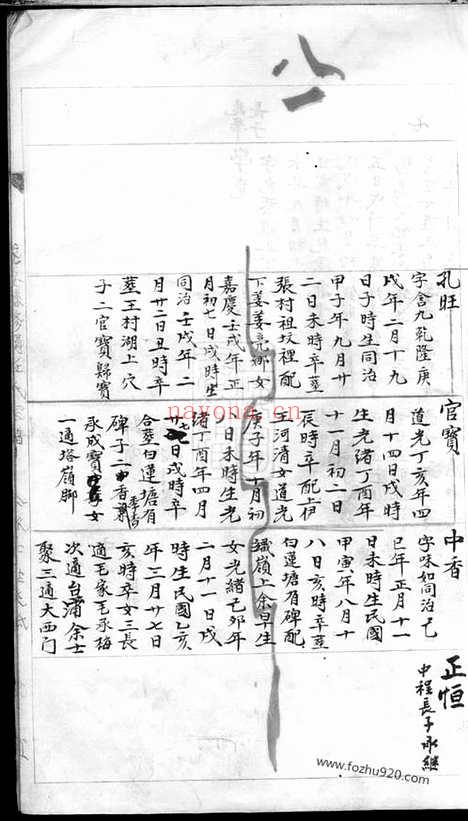 八
孔旺
字舍九乾隆庚
戌年二月十九
日子時生同治
甲子年九月廿
二日未時卒塟
張村祖坟裡配
下姜姜亮娜女
嘉慶壬戌年正
月初七日戌時生
同治壬戌年二
月廿二日丑時卒
塟王村湖上穴
子二官寶歸寶
官寶
道光丁亥年四
月十四日戌時
生光緒丁酉年
十一月初二日
辰時卒配上伊
王河清女道光
庚子年十月初
八日未時生光
緒丁酉年四月
廿日戌時卒
合塟白蓮塘有
碑子二中香
承成寶女
一適塔嶺脚
中香
字味如同治己
巳年正月十一
日未時生民國
甲寅年八月十
八日亥時卒塟
白蓮塘有碑配
嶺上余早生
女光緒己卯年
二月十一日戌
時生民國乙亥
年三月廿七日
亥時卒女三長
適毛家毛承梅
次適台蒲余士
聚三適大西門
正恒
中程長子承繼
nayona.cn
www.fozhu920.com